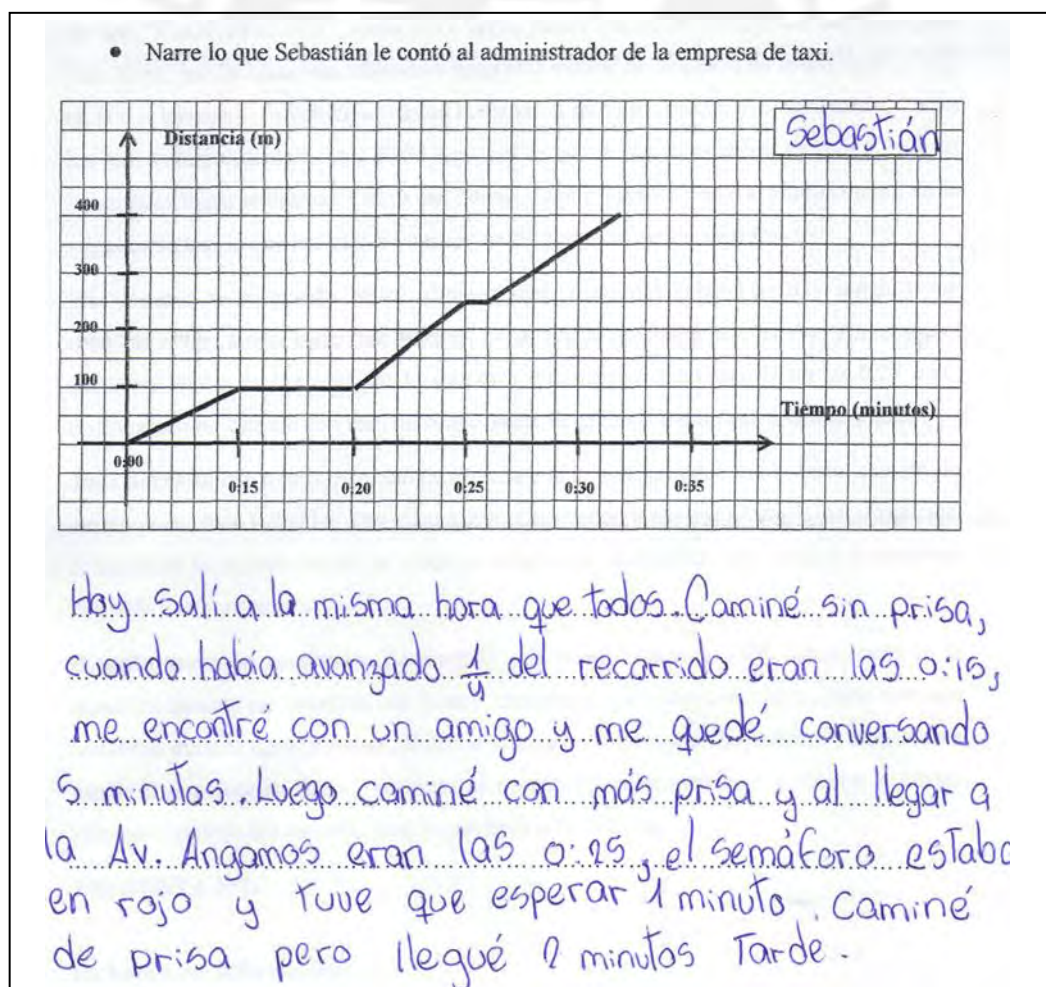 • Narre lo que Sebastián le contó al administrador de la empresa de taxi.
Distancia (m)
Sebastián
400
300
200
100
Tiempo (minutos)
0:00
0:15
0:20
0:25
0:30
0:35
Hoy salí a la misma hora que todos. Caminé sin prisa,
cuando había avanzado 1/4 del recorrido eran las 0:15,
me encontré con un amigo y me quedé conversando
5 minutos. Luego caminé con más prisa y al llegar a
la Av. Angamos eran las 0:25, el semáforo estaba
en rojo y tuve que esperar 1 minuto. Caminé
de prisa pero llegué 2 minutos tarde.